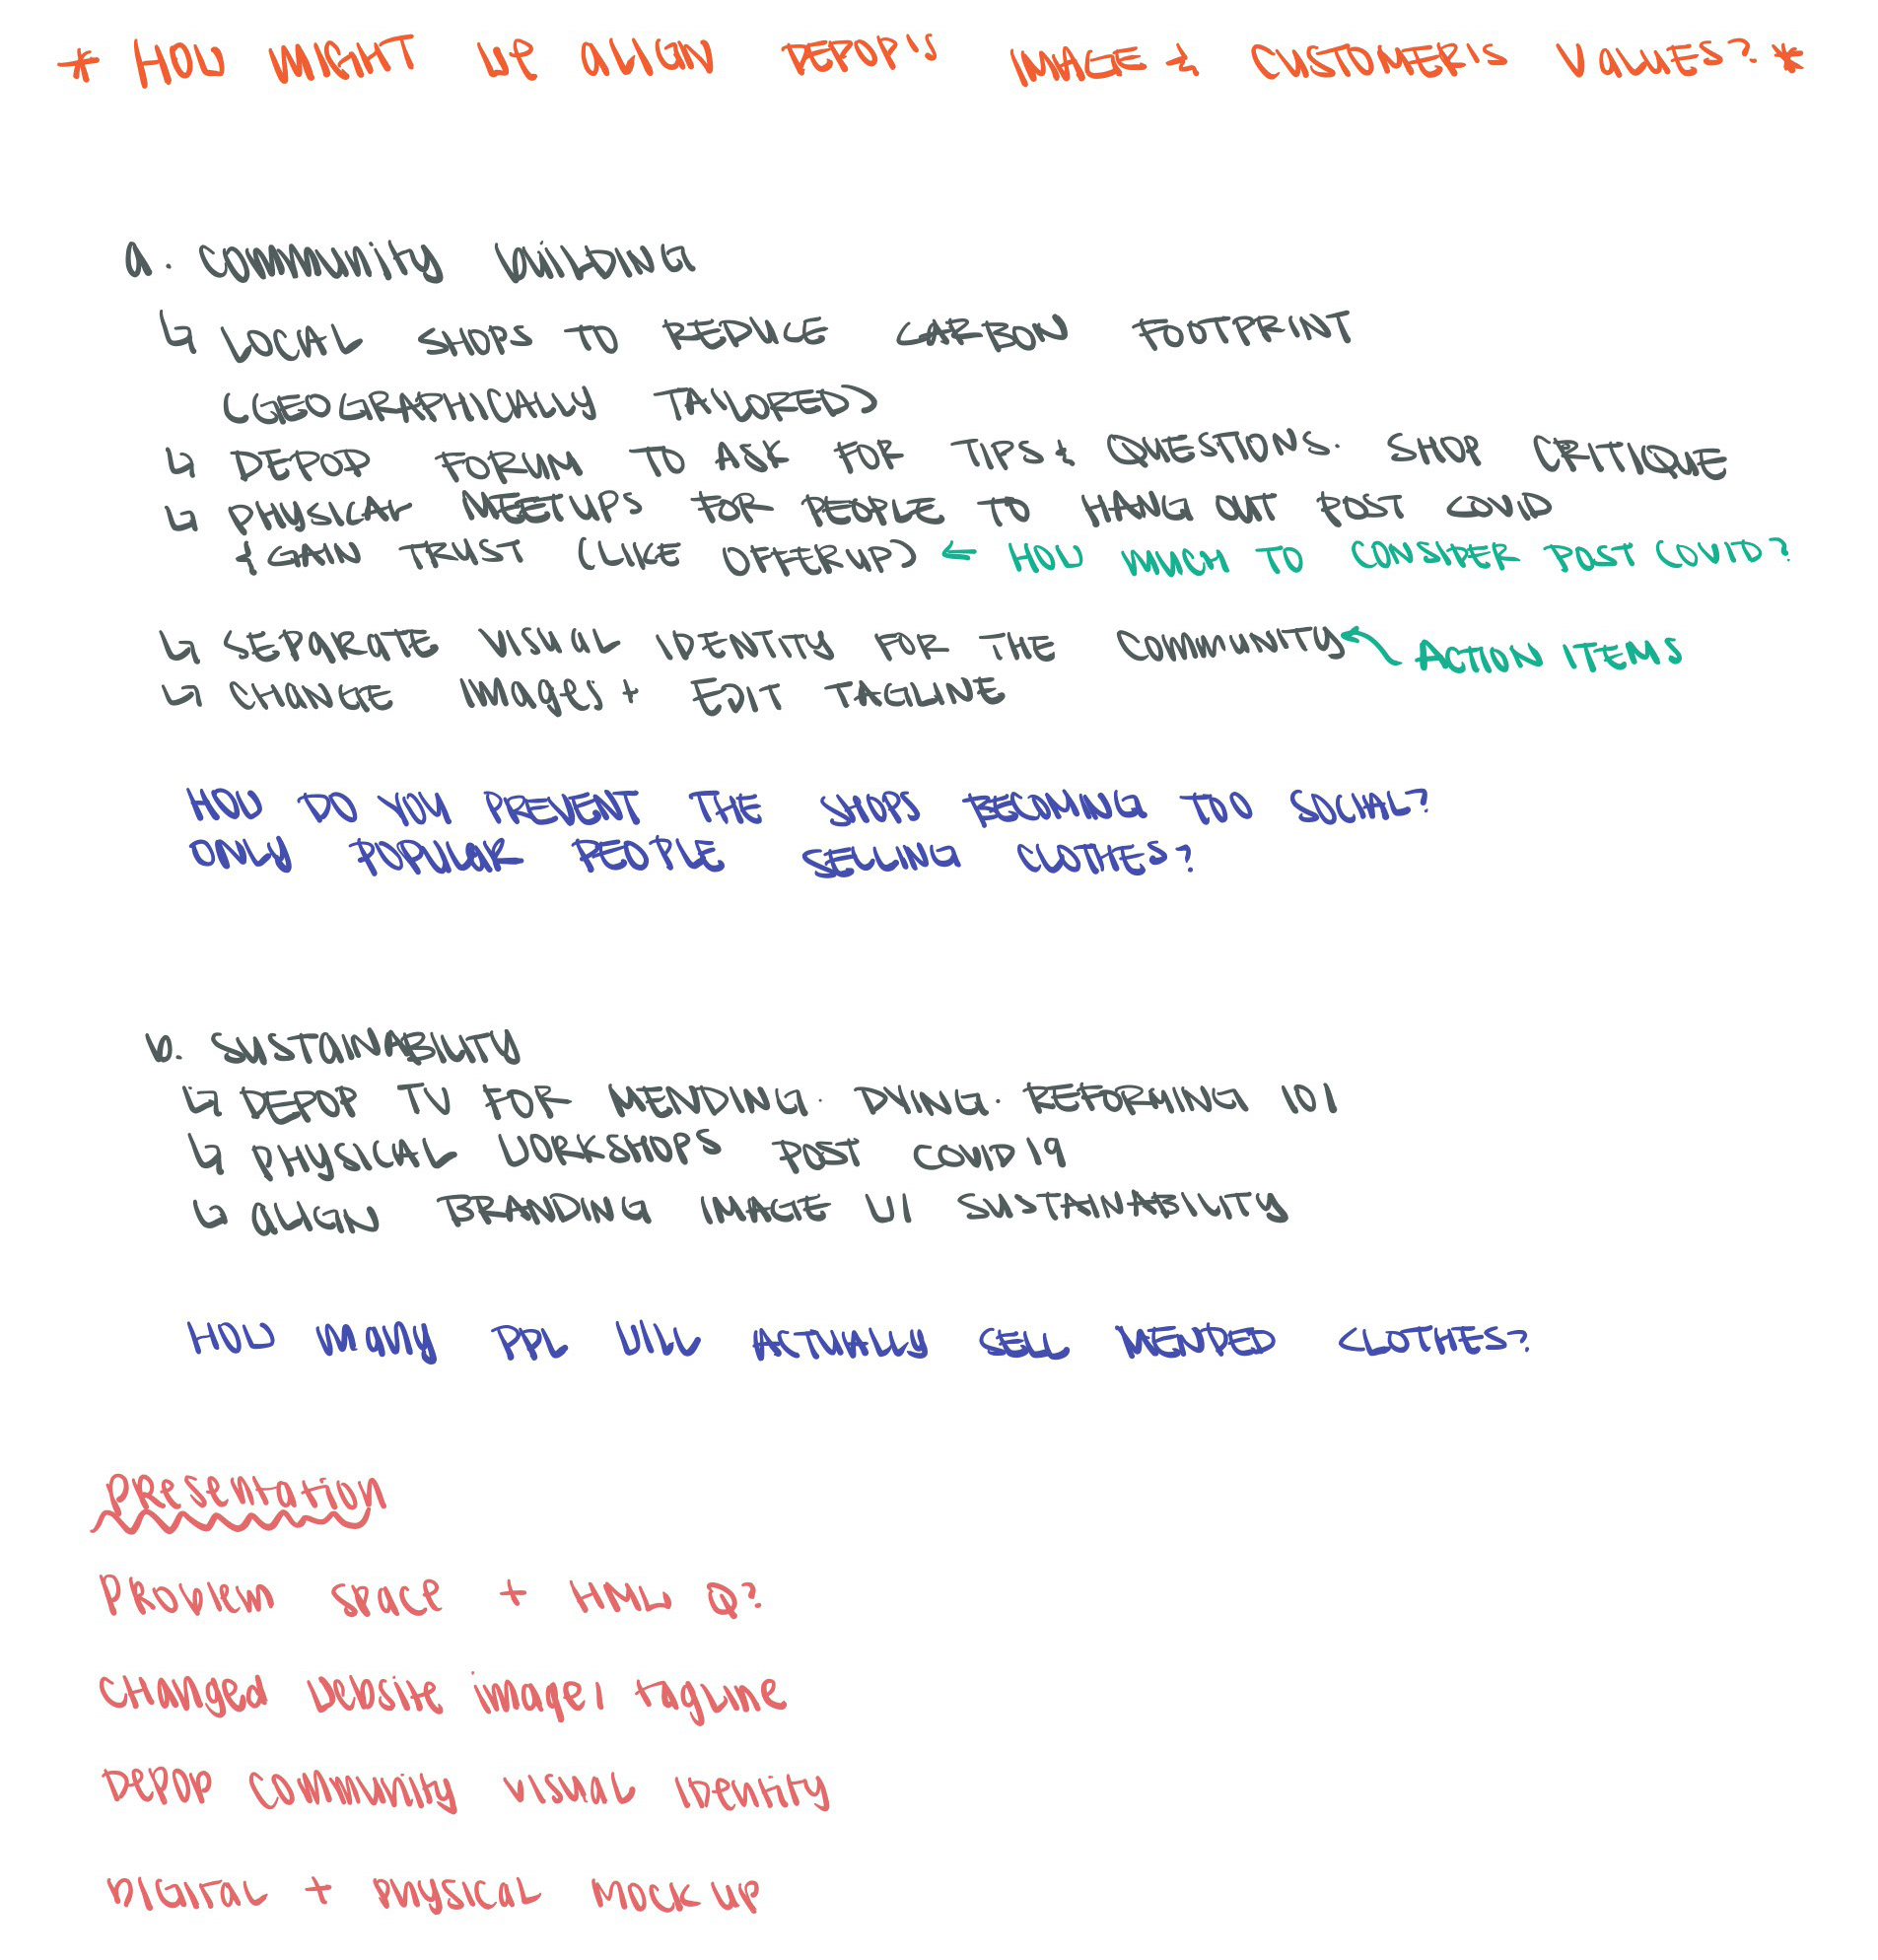 * HOW MIGHT WE ALIGN DEPOP'S IMAGE & CUSTOMER'S VALUES? *
a. COMMUNITY BUILDING
↳ LOCAL SHOPS TO REDUCE CARBON FOOTPRINT
(GEOGRAPHICALLY TAILORED)
↳ DEPOP FORUM TO ASK FOR TIPS & QUESTIONS. SHOP CRITIQUE
↳ PHYSICAL MEETUPS FOR PEOPLE TO HANG OUT POST COVID
& GAIN TRUST (LIKE OFFERUP) ← HOW MUCH TO CONSIDER POST COVID?
↳ SEPARATE VISUAL IDENTITY FOR THE COMMUNITY ← ACTION ITEMS
↳ CHANGE IMAGES + EDIT TAGLINE
HOW DO YOU PREVENT THE SHOPS BECOMING TOO SOCIAL?
ONLY POPULAR PEOPLE SELLING CLOTHES?
b. SUSTAINABILITY
↳ DEPOP TV FOR MENDING. DYING. REFORMING 101
↳ PHYSICAL WORKSHOPS POST COVID 19
↳ ALIGN BRANDING IMAGE W/ SUSTAINABILITY
HOW MANY PPL WILL ACTUALLY SELL MENDED CLOTHES?
PRESENTATION
PROBLEM SPACE + HMW Q?
CHANGED WEBSITE IMAGE / TAGLINE
DEPOP COMMUNITY VISUAL IDENTITY
DIGITAL + PHYSICAL MOCK UP